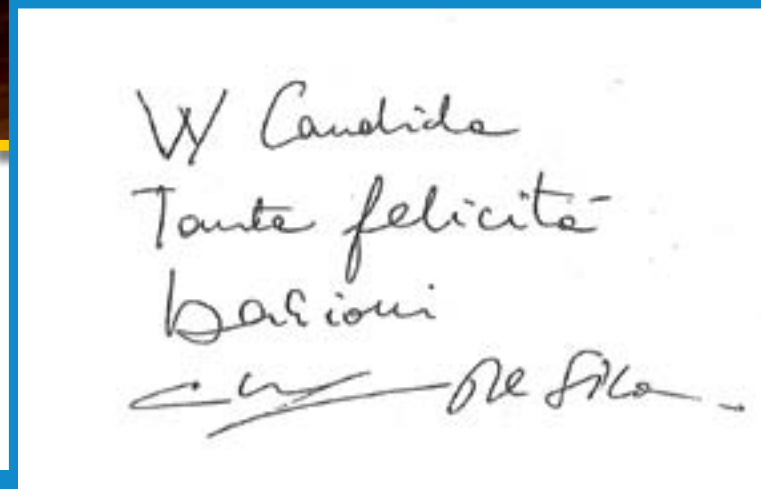 W Candida
Tanta felicità
bacioni
De Sica